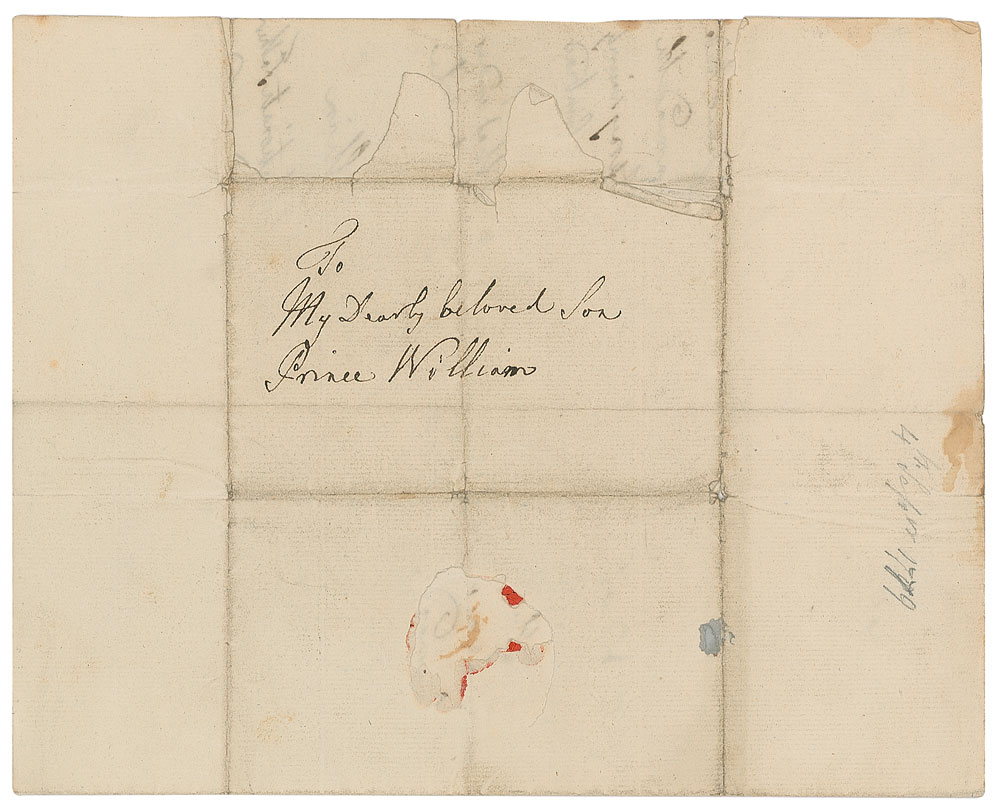 To
My Dearly beloved Son
Prince William
4th Septr 1779